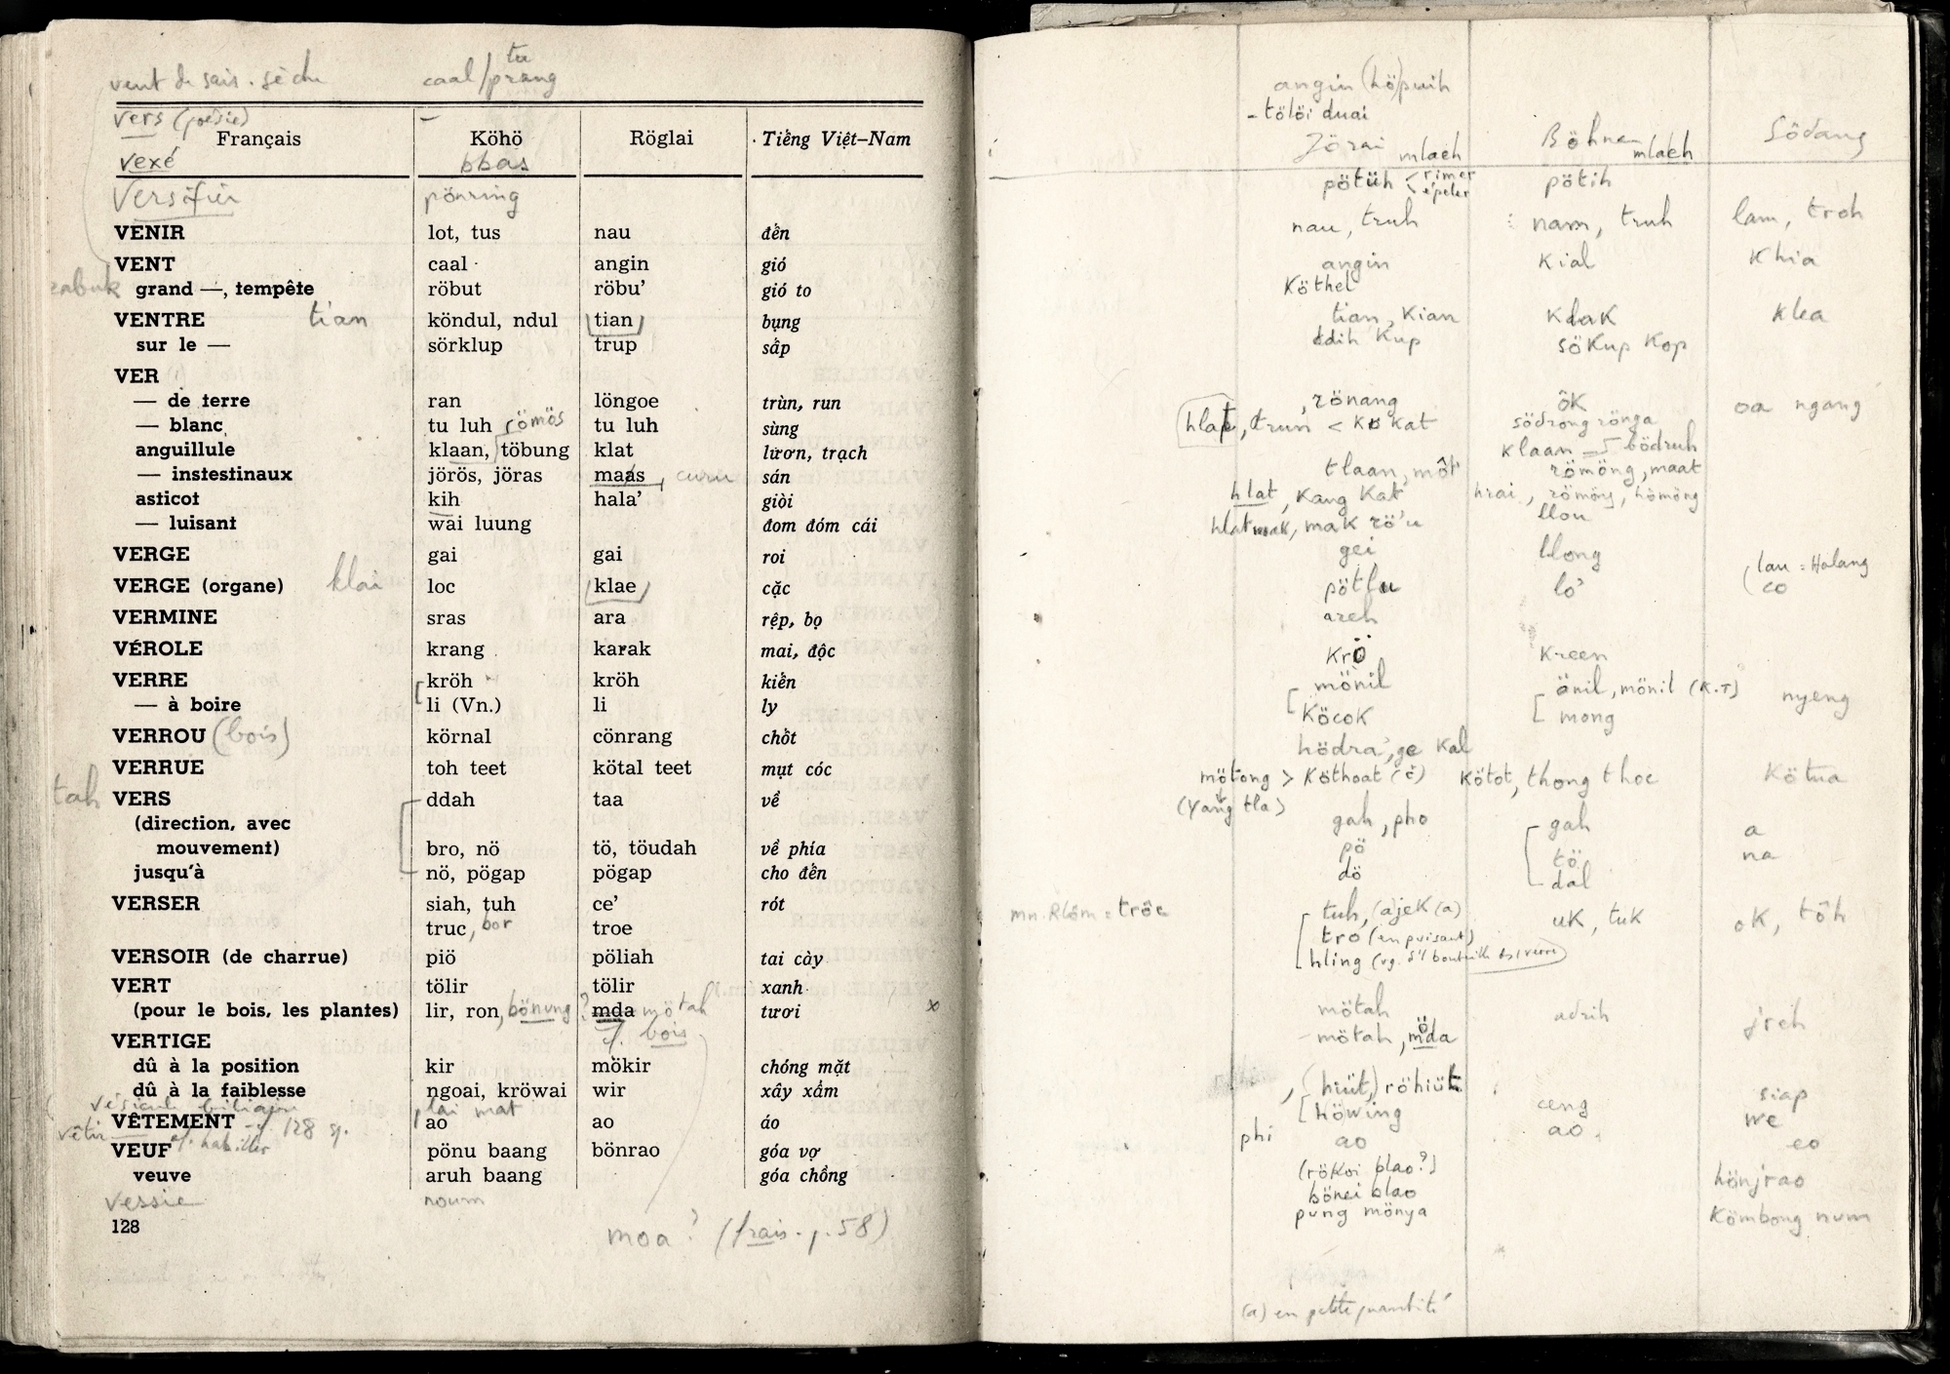 vent de sais. sèche caal/prang
tu
vers (poésie)
Français Köhö Röglai Tiếng Việt-Nam
vexé bbas
Versifier pönring
VENIR lot, tus nau đến
VENT caal angin gió
grand —, tempête röbut röbu’ gió to
VENTRE tian köndul, ndul tian bụng
sur le — sörklup trup sấp
VER
— de terre ran löngoe trùn, run
— blanc tu luh römös tu luh sùng
anguillule klaan, töbung klat lươn, trạch
— instestinaux jörös, jöras maas, sán
asticot kih hala’ giòi
— luisant wai luung đom đóm cái
VERGE gai gai roi
VERGE (organe) klai loc klae cặc
VERMINE sras ara rệp, bọ
VÉROLE krang karak mai, độc
VERRE kröh kröh kiến
— à boire li (Vn.) li ly
VERROU (bois) körnal cönrang chốt
VERRUE toh teet kötal teet mụt cóc
tah
VERS ddah taa về
(direction, avec
mouvement) bro, nö tö, töudah về phía
jusqu’à nö, pögap pögap cho đến
VERSER siah, tuh ce’ rót
truc, bor troe
VERSOIR (de charrue) piö pöliah tai cày
VERT tölir tölir xanh
(pour le bois, les plantes) lir, ron, bönung? mda mötah tươi x
bois
VERTIGE
dû à la position kir mökir chóng mặt
dû à la faiblesse ngoai, kröwai wir xây xẩm
vésicule biliaire plai mat
VÊTEMENT ao ao áo
vêtir — cf. habiller
VEUF pönu baang bönrao góa vợ
veuve aruh baang góa chồng
vessie noum
128
moa? (frais. p. 58)
angin (hö)puih
- tölöi duai
Jörai mlaeh Böhnar mlaeh Södang
pötüh < rimer pötih
épeler
nau, truh nam, truh lam, troh
angin kial khia
Köthel
tian, Kian Kdak klea
ddih Kup söKup Kop
, rönang ôK oa ngang
hlat, trun < Kö Kat södrong rönga
klaan bödruh
tlaan, môt römöng, maat
hlat, Kang Kat hrai, römöng, hömöng
hlat mak, mak rö’u llou
gei llong
(lau = Halang
pötlu lo’ co
areh
Krö Kreen
mönil änil, mönil (K.T) nyeng
Köcok mong
hödra’, ge Kal
mötong > Köthoat (č) Kötot, thong thoc Kötua
(Yang tla)
gah, pho gah a
pö tö na
dö dal
mn. Rlöm = tröc tuh, (a)jeK (a) uK, tuK oK, tôh
tro (en puisant)
hling
mötah adrih jreh
- mötah, möda
, (hiüt,) röhiüt siap
höwing ceng we
phi ao ao eo
(röKoi blao?)
bönei blao hönjrao
pung mönya Kömbong num
(a) en petite quantité